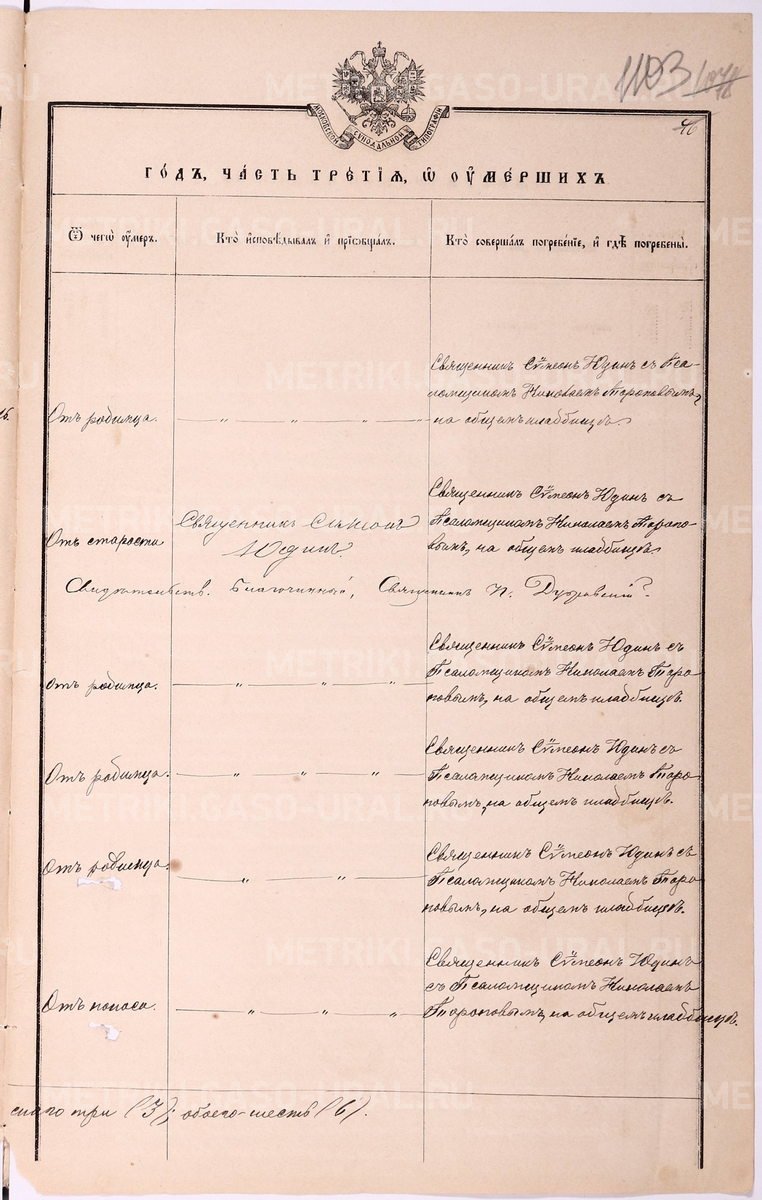 1103
46
МОСКОВСКОЙ СѴНОДАЛЬНОЙ ТИПОГРАФІИ
ГОДЪ, ЧАСТЬ ТРЕТІЯ, Ѡ ОУМЕРШИХЪ
Ѿ чегѡ оумеръ.
Кто исповѣдывалъ и пріобщалъ.
Кто совершалъ погребеніе, и гдѣ погребены.
Священникъ Сѵмеонъ Юдинъ съ Пса-
ломщикомъ Николаемъ Тороповымъ,
Отъ родимца. — „ — „ — „ — „ на общемъ кладбищѣ.
Священникъ Сѵмеонъ Юдинъ съ
Священник Симеонъ Псаломщикомъ Николаемъ Торопо-
Отъ старости Юдинъ. вымъ, на общемъ кладбищѣ.
Свидѣтельств. Благочинный, Священникъ
Священникъ Сѵмеонъ Юдинъ съ
Псаломщикомъ Николаемъ Торо-
Отъ родимца. — „ — „ — „ повымъ, на общемъ кладбищѣ.
Священникъ Сѵмеонъ Юдинъ съ
Отъ родимца. — „ — „ — „ Псаломщикомъ Николаемъ Торо-
повымъ, на общемъ кладбищѣ.
Священникъ Сѵмеонъ Юдинъ съ
Отъ родимца. — „ — „ Псаломщикомъ Николаемъ Торо-
повымъ, на общемъ кладбищѣ.
Священникъ Сѵмеонъ Юдинъ
съ Псаломщикомъ Николаемъ
Отъ поноса. — „ — „ — „ Тороповымъ, на общемъ кладбищѣ.
скаго три (3); обоего-шесть (6).
METRIKI.GASO-URAL.RU